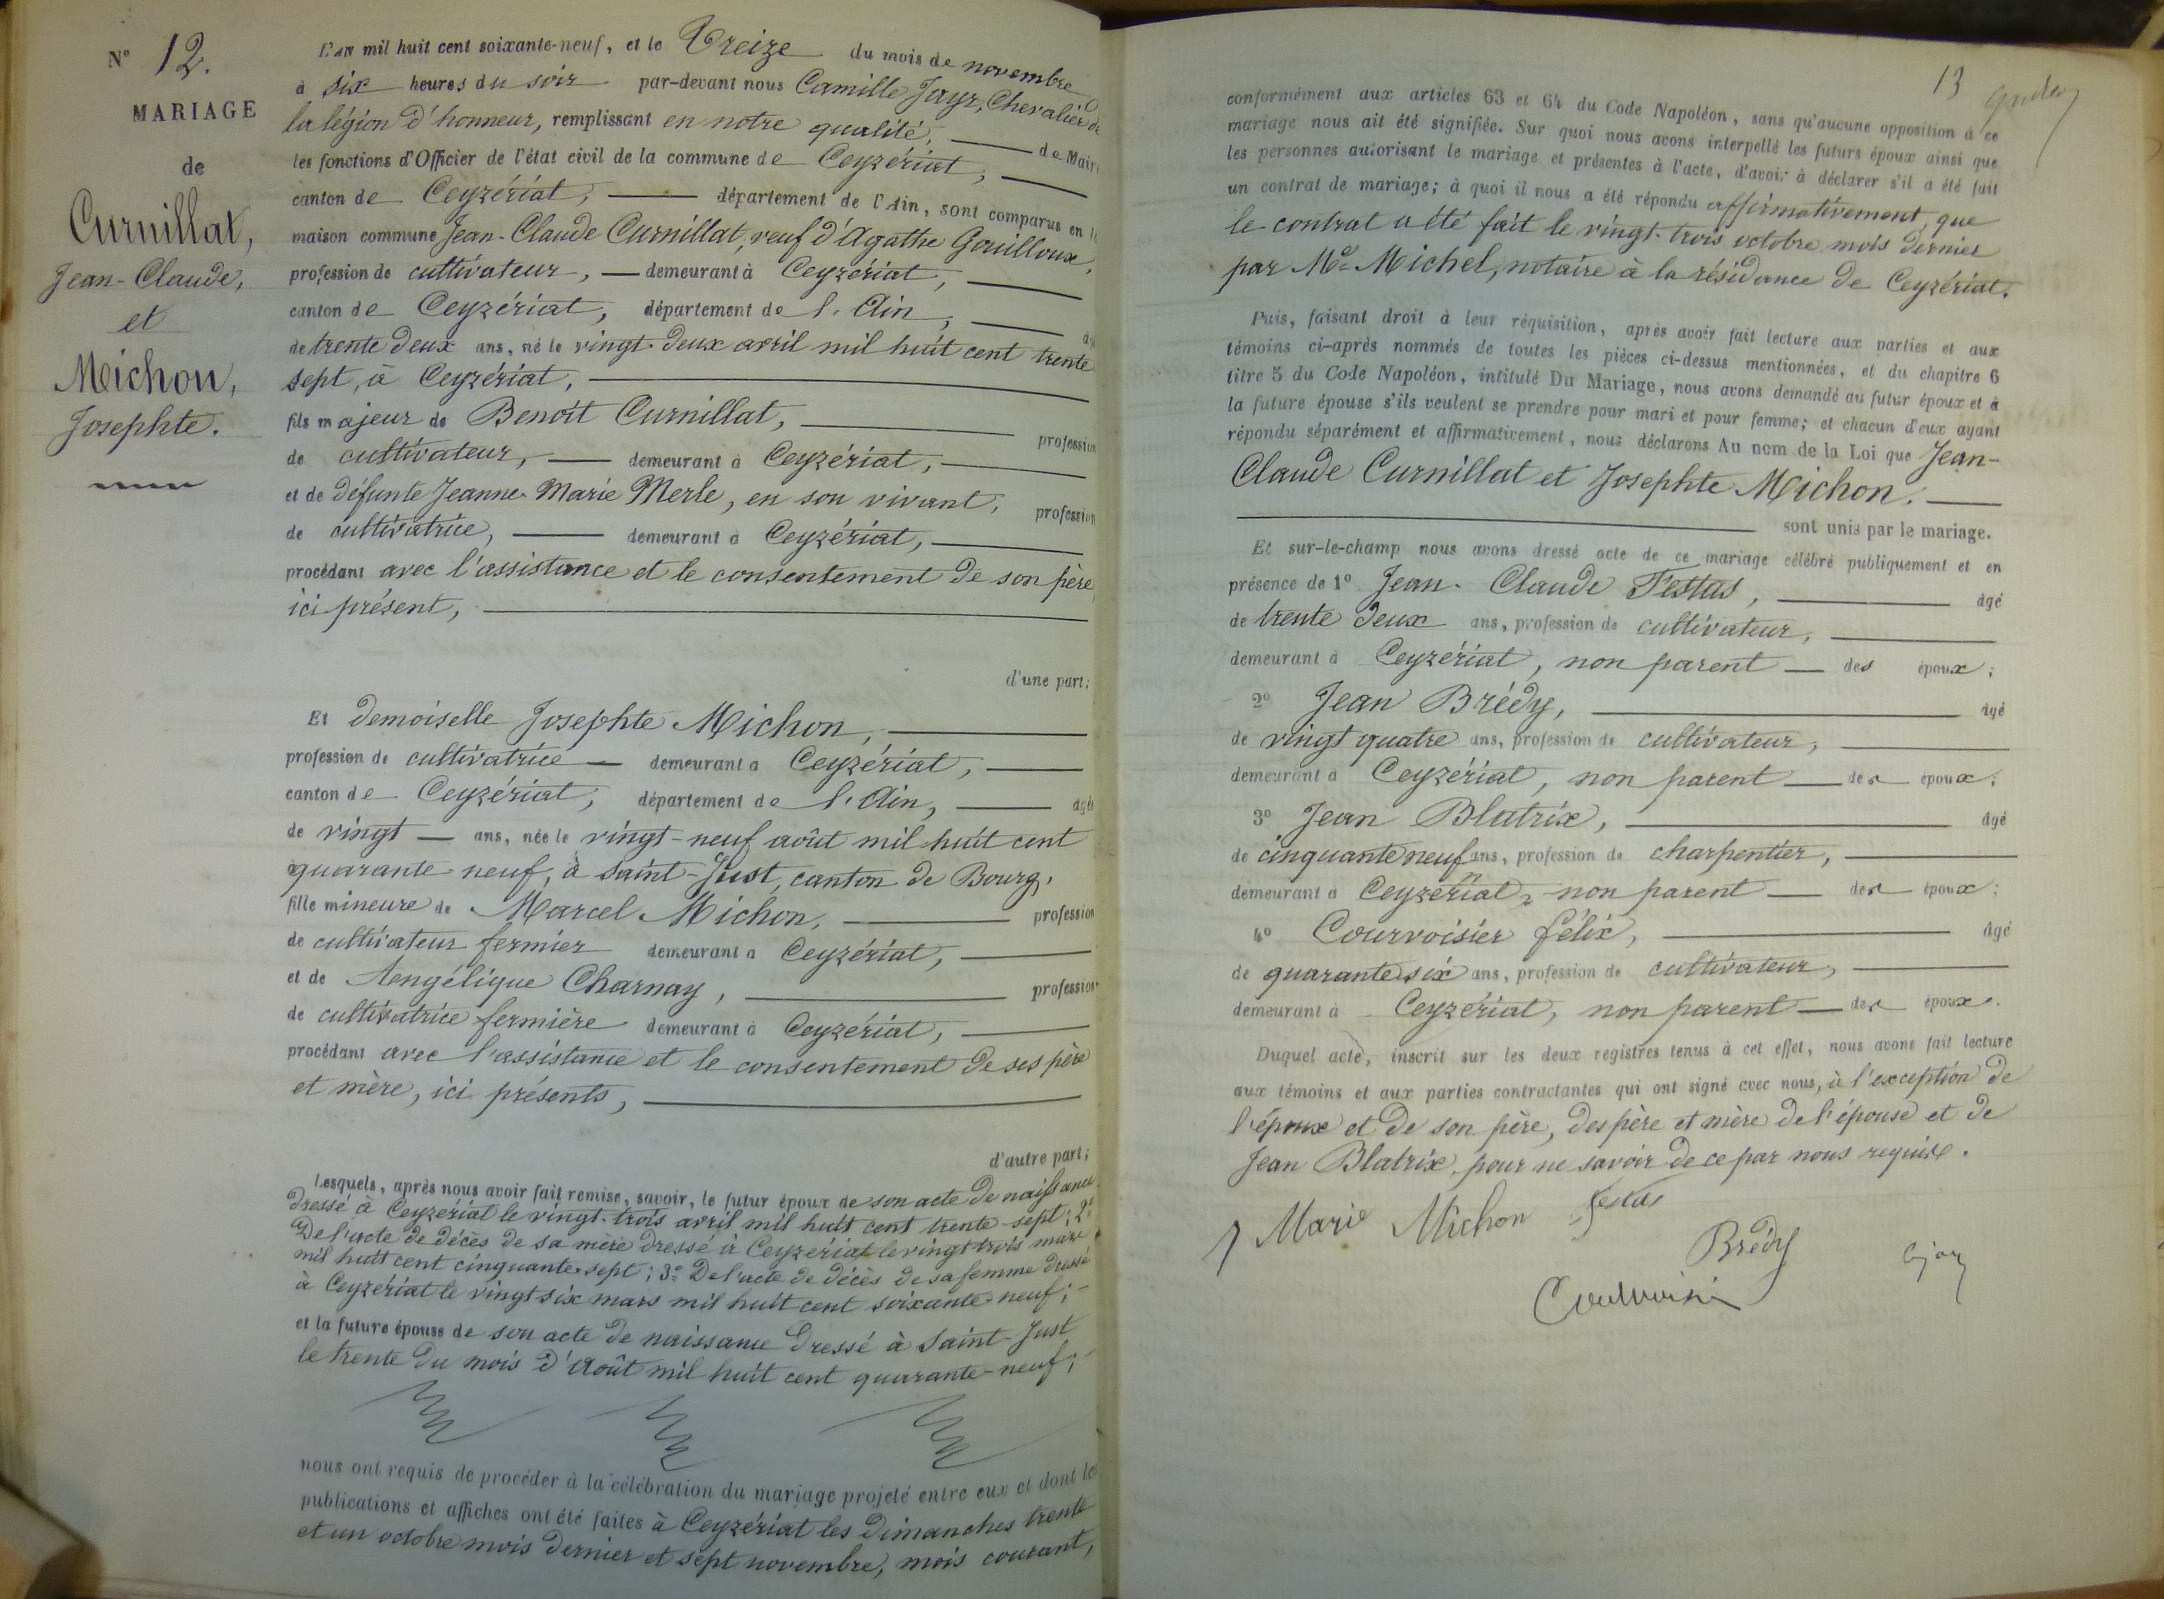 N° 12.
MARIAGE
de
Curnillat,
Jean-Claude,
et
Michon,
Josephte.
L'an mil huit cent soixante-neuf, et le Treize du mois de novembre
à six heures du soir par-devant nous Camille Jayr, Chevalier de
la légion d'honneur, remplissant en notre qualité, de Maire
les fonctions d'Officier de l'état civil de la commune de Ceyzériat,
canton de Ceyzériat, département de l'Ain, sont comparus en la
maison commune Jean-Claude Curnillat, veuf d'Agathe Gouilloux,
profession de cultivateur, demeurant à Ceyzériat,
canton de Ceyzériat, département de l'Ain,
de trente deux ans, né le vingt-deux avril mil huit cent trente
sept, à Ceyzériat,
fils majeur de Benoît Curnillat, profession
de cultivateur, demeurant à Ceyzériat,
et de défunte Jeanne-Marie Merle, en son vivant, profession
de cultivatrice, demeurant à Ceyzériat,
procédant avec l'assistance et le consentement de son père
ici présent,
d'une part;
Et demoiselle Josephte Michon,
profession de cultivatrice demeurant à Ceyzériat,
canton de Ceyzériat, département de l'Ain, agée
de vingt ans, née le vingt-neuf août mil huit cent
quarante neuf, à Saint-Just, canton de Bourg,
fille mineure de Marcel Michon, profession
de cultivateur fermier demeurant à Ceyzériat,
et de Angélique Charnay, profession
de cultivatrice fermière demeurant à Ceyzériat,
procédant avec l'assistance et le consentement de ses père
et mère, ici présents,
d'autre part;
Lesquels, après nous avoir fait remise, savoir, le futur époux de son acte de naissance
dressé à Ceyzériat le vingt-trois avril mil huit cent trente-sept; 2°
De l'acte de décès de sa mère dressé à Ceyzériat le vingt trois mars
mil huit cent cinquante-sept; 3° De l'acte de décès de sa femme dressé
à Ceyzériat le vingt six mars mil huit cent soixante-neuf;
et la future épouse de son acte de naissance dressé à Saint-Just
le trente du mois d'Août mil huit cent quarante-neuf;
nous ont requis de procéder à la célébration du mariage projeté entre eux et dont les
publications et affiches ont été faites à Ceyzériat les dimanches trente
et un octobre mois dernier et sept novembre, mois courant,
13
conformément aux articles 63 et 64 du Code Napoléon, sans qu'aucune opposition à ce
mariage nous ait été signifiée. Sur quoi nous avons interpellé les futurs époux ainsi que
les personnes autorisant le mariage et présentes à l'acte, d'avoir à déclarer s'il a été fait
un contrat de mariage; à quoi il nous a été répondu affirmativement, que
le contrat a été fait le vingt-trois octobre mois dernier
par Me Michel, notaire à la résidance de Ceyzériat.
Puis, faisant droit à leur réquisition, après avoir fait lecture aux parties et aux
témoins ci-après nommés de toutes les pièces ci-dessus mentionnées, et du chapitre 6
titre 5 du Code Napoléon, intitulé Du Mariage, nous avons demandé au futur époux et à
la future épouse s'ils veulent se prendre pour mari et pour femme; et chacun d'eux ayant
répondu séparément et affirmativement, nous déclarons Au nom de la Loi que Jean-
Claude Curnillat et Josephte Michon.
sont unis par le mariage.
Et sur-le-champ nous avons dressé acte de ce mariage célébré publiquement et en
présence de 1° Jean-Claude Festas, âgé
de trente deux ans, profession de cultivateur,
demeurant à Ceyzériat, non parent des époux;
2° Jean Brédy, âgé
de vingt quatre ans, profession de cultivateur,
demeurant à Ceyzériat, non parent des époux;
3° Jean Blatrix, âgé
de cinquante neuf ans, profession de charpentier,
demeurant à Ceyzériat, non parent des époux;
4° Courvoisier félix, âgé
de quarante six ans, profession de cultivateur,
demeurant à Ceyzériat, non parent des époux.
Duquel acte, inscrit sur les deux registres tenus à cet effet, nous avons fait lecture
aux témoins et aux parties contractantes qui ont signé avec nous, à l'exception de
l'époux et de son père, des père et mère de l'épouse et de
Jean Blatrix, pour ne savoir de ce par nous requise.
Marie Michon Festas
Brédy